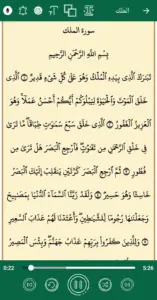 الملك
سورة الملك
بِسْمِ اللَّهِ الرَّحْمَنِ الرَّحِيمِ
تَبَارَكَ الَّذِي بِيَدِهِ الْمُلْكُ وَهُوَ عَلَى كُلِّ شَيْءٍ قَدِيرٌ ۝١ الَّذِي
خَلَقَ الْمَوْتَ وَالْحَيَاةَ لِيَبْلُوَكُمْ أَيُّكُمْ أَحْسَنُ عَمَلًا وَهُوَ
الْعَزِيزُ الْغَفُورُ ۝٢ الَّذِي خَلَقَ سَبْعَ سَمَاوَاتٍ طِبَاقًا مَّا تَرَى
فِي خَلْقِ الرَّحْمَنِ مِن تَفَاوُتٍ فَارْجِعِ الْبَصَرَ هَلْ تَرَى مِن
فُطُورٍ ۝٣ ثُمَّ ارْجِعِ الْبَصَرَ كَرَّتَيْنِ يَنقَلِبْ إِلَيْكَ الْبَصَرُ
خَاسِئًا وَهُوَ حَسِيرٌ ۝٤ وَلَقَدْ زَيَّنَّا السَّمَاءَ الدُّنْيَا بِمَصَابِيحَ
وَجَعَلْنَاهَا رُجُومًا لِّلشَّيَاطِينِ وَأَعْتَدْنَا لَهُمْ عَذَابَ السَّعِيرِ
۝٥ وَلِلَّذِينَ كَفَرُوا بِرَبِّهِمْ عَذَابُ جَهَنَّمَ وَبِئْسَ الْمَصِيرُ
0:22 5:26